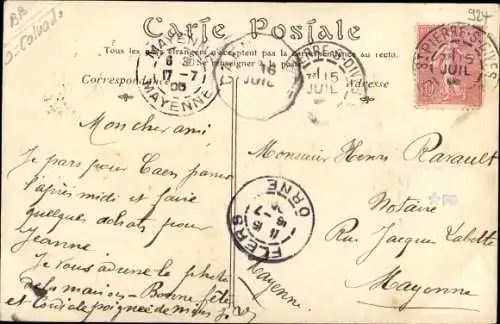 BB
924
Carte Postale
Tous les pays étrangers n'acceptent pas la correspondance au recto.
Se renseigner à la poste
Correspondance
Adresse
MAYENNE
17-7
MAYENNE
16
JUIL
ST PIERRE-S-DIVES
15
JUIL
ST PIERRE-S-DIVES
15
JUIL
Mon cher ami
Je pars pour Caen passer
l'après midi et faire
quelques achats pour
Jeanne
Je vous adresse la photo
des maisons - Bonne fête
et Cordiale poignée de mains
Monsieur Henri Ravault
Notaire
Rue Jacques Labitte
Mayenne
Mayenne
FLERS
16-7
ORNE